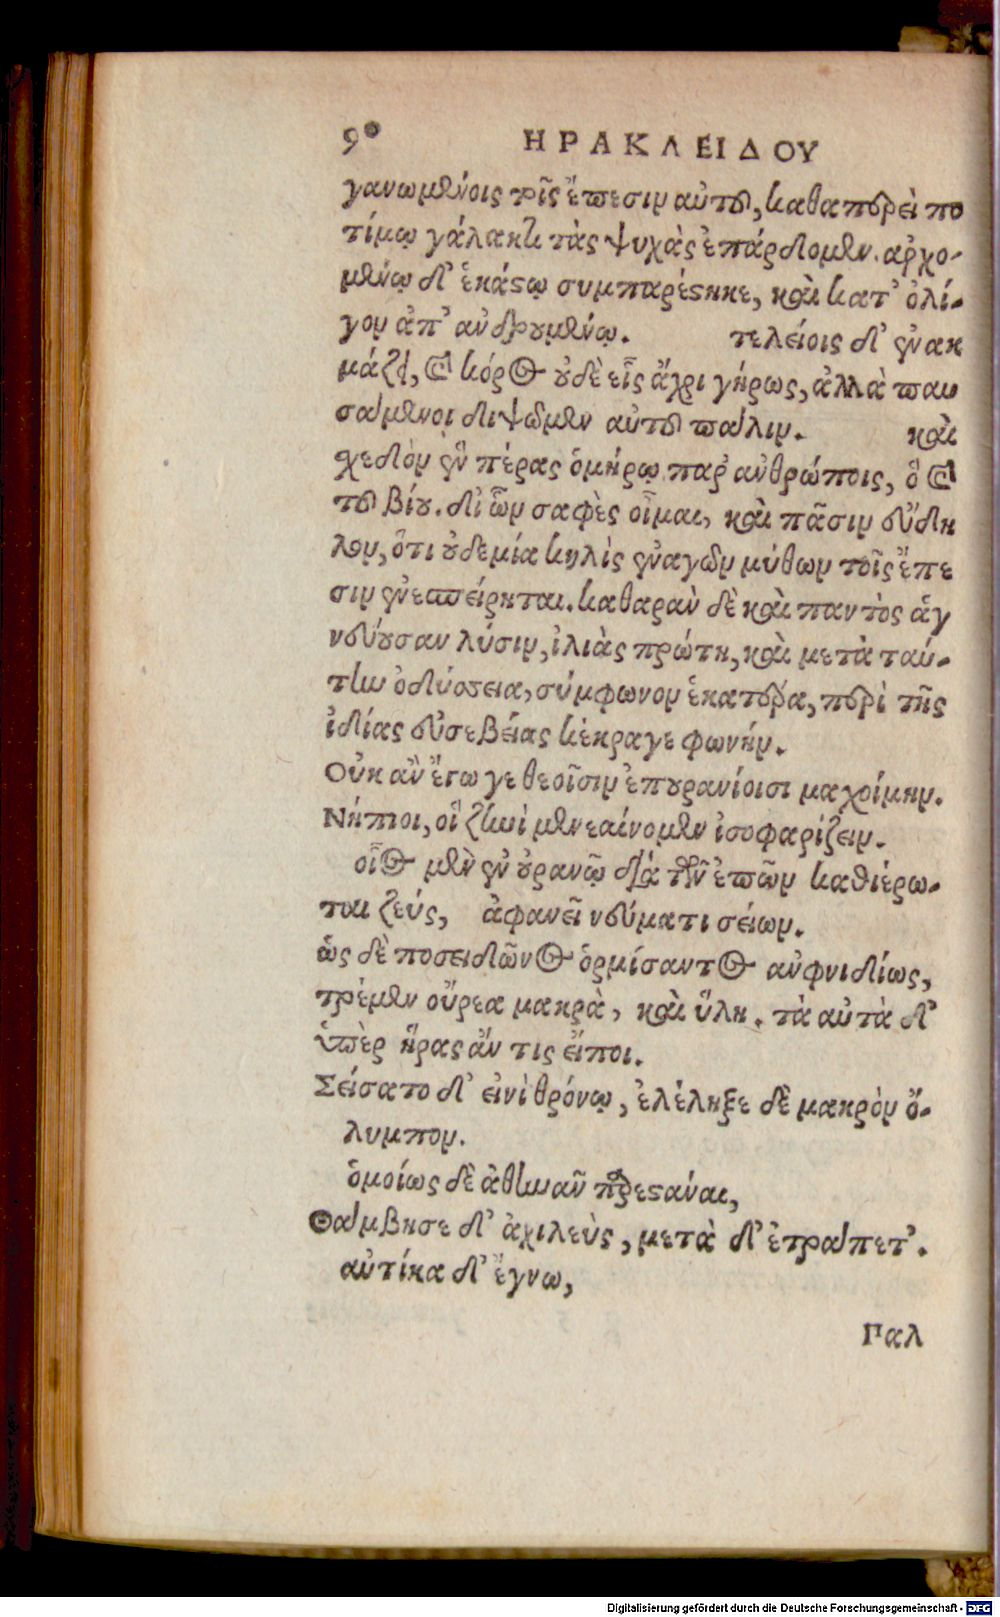 90 ΗΡΑΚΛΕΙΔΟΥ
γανωμένοις τοῖς ἔπεσιν αὐτοῦ, καθαπερεὶ πο
τίμῳ γάλακτι τὰς ψυχὰς ἐπάρδομεν. αρχο-
μένῳ δ' ἑκάστῳ συμπαρέστηκε, καὶ κατ' ὀλί-
γον ἀπ' ανδρουμένῳ. τελείοις δ' ἐνακ
μάζει, καὶ κόρος οὐδὲ εἷς ἄχρι γήρως, ἀλλὰ παυ
σάμενοι διψῶμεν αὐτοῦ πάλιν. καὶ
χεδὸν ἓν πέρας ὁμήρῳ παρ' ανθρώποις, ὃ καὶ
τοῦ βίου. δι' ὧν σαφὲς οἶμαι, καὶ πᾶσιν εὔδη
λον, ὅτι οὐδεμία κηλὶς ἐναγῶν μύθων τοῖς ἔπε
σιν ἐνεσπείρηται. καθαρὰν δὲ καὶ παντὸς ἁγ
νεύουσαν λύσιν, ἰλιὰς πρώτη, καὶ μετὰ ταύ-
την ὀδύσσεια, σύμφωνον ἑκατέρα, περὶ τῆς
ἰδίας εὐσεβείας κέκραγε φωνήν.
Οὐκ ἂν ἔγωγε θεοῖσιν ἐπουρανίοισι μαχοίμην.
Νήπιοι, οἳ ζηνὶ μενεαίνομεν ἰσοφαρίζειν.
οἷος μὲν ἐν οὐρανῷ διὰ τῶν ἐπῶν καθιέρω-
ται ζεύς, ἀφανεῖ νεύματι σείων.
ὡς δὲ ποσειδῶνος ὁρμίσαντος αὐφνιδίως,
τρέμεν οὔρεα μακρὰ, καὶ ὕλη. τὰ αὐτὰ δ'
ὑπὲρ ἥρας ἄν τις εἴποι.
Σείσατο δ' εἰνὶ θρόνῳ, ἐλέληξε δὲ μακρὸν ὄ-
λυμπον.
ὁμοίως δὲ ἀθηναῦ προεστάναι,
Θάμβησε δ' ἀχιλεὺς, μετὰ δ' ἐτράπετ'.
αὐτίκα δ' ἔγνω,
Παλ
Digitalisierung gefördert durch die Deutsche Forschungsgemeinschaft - DFG